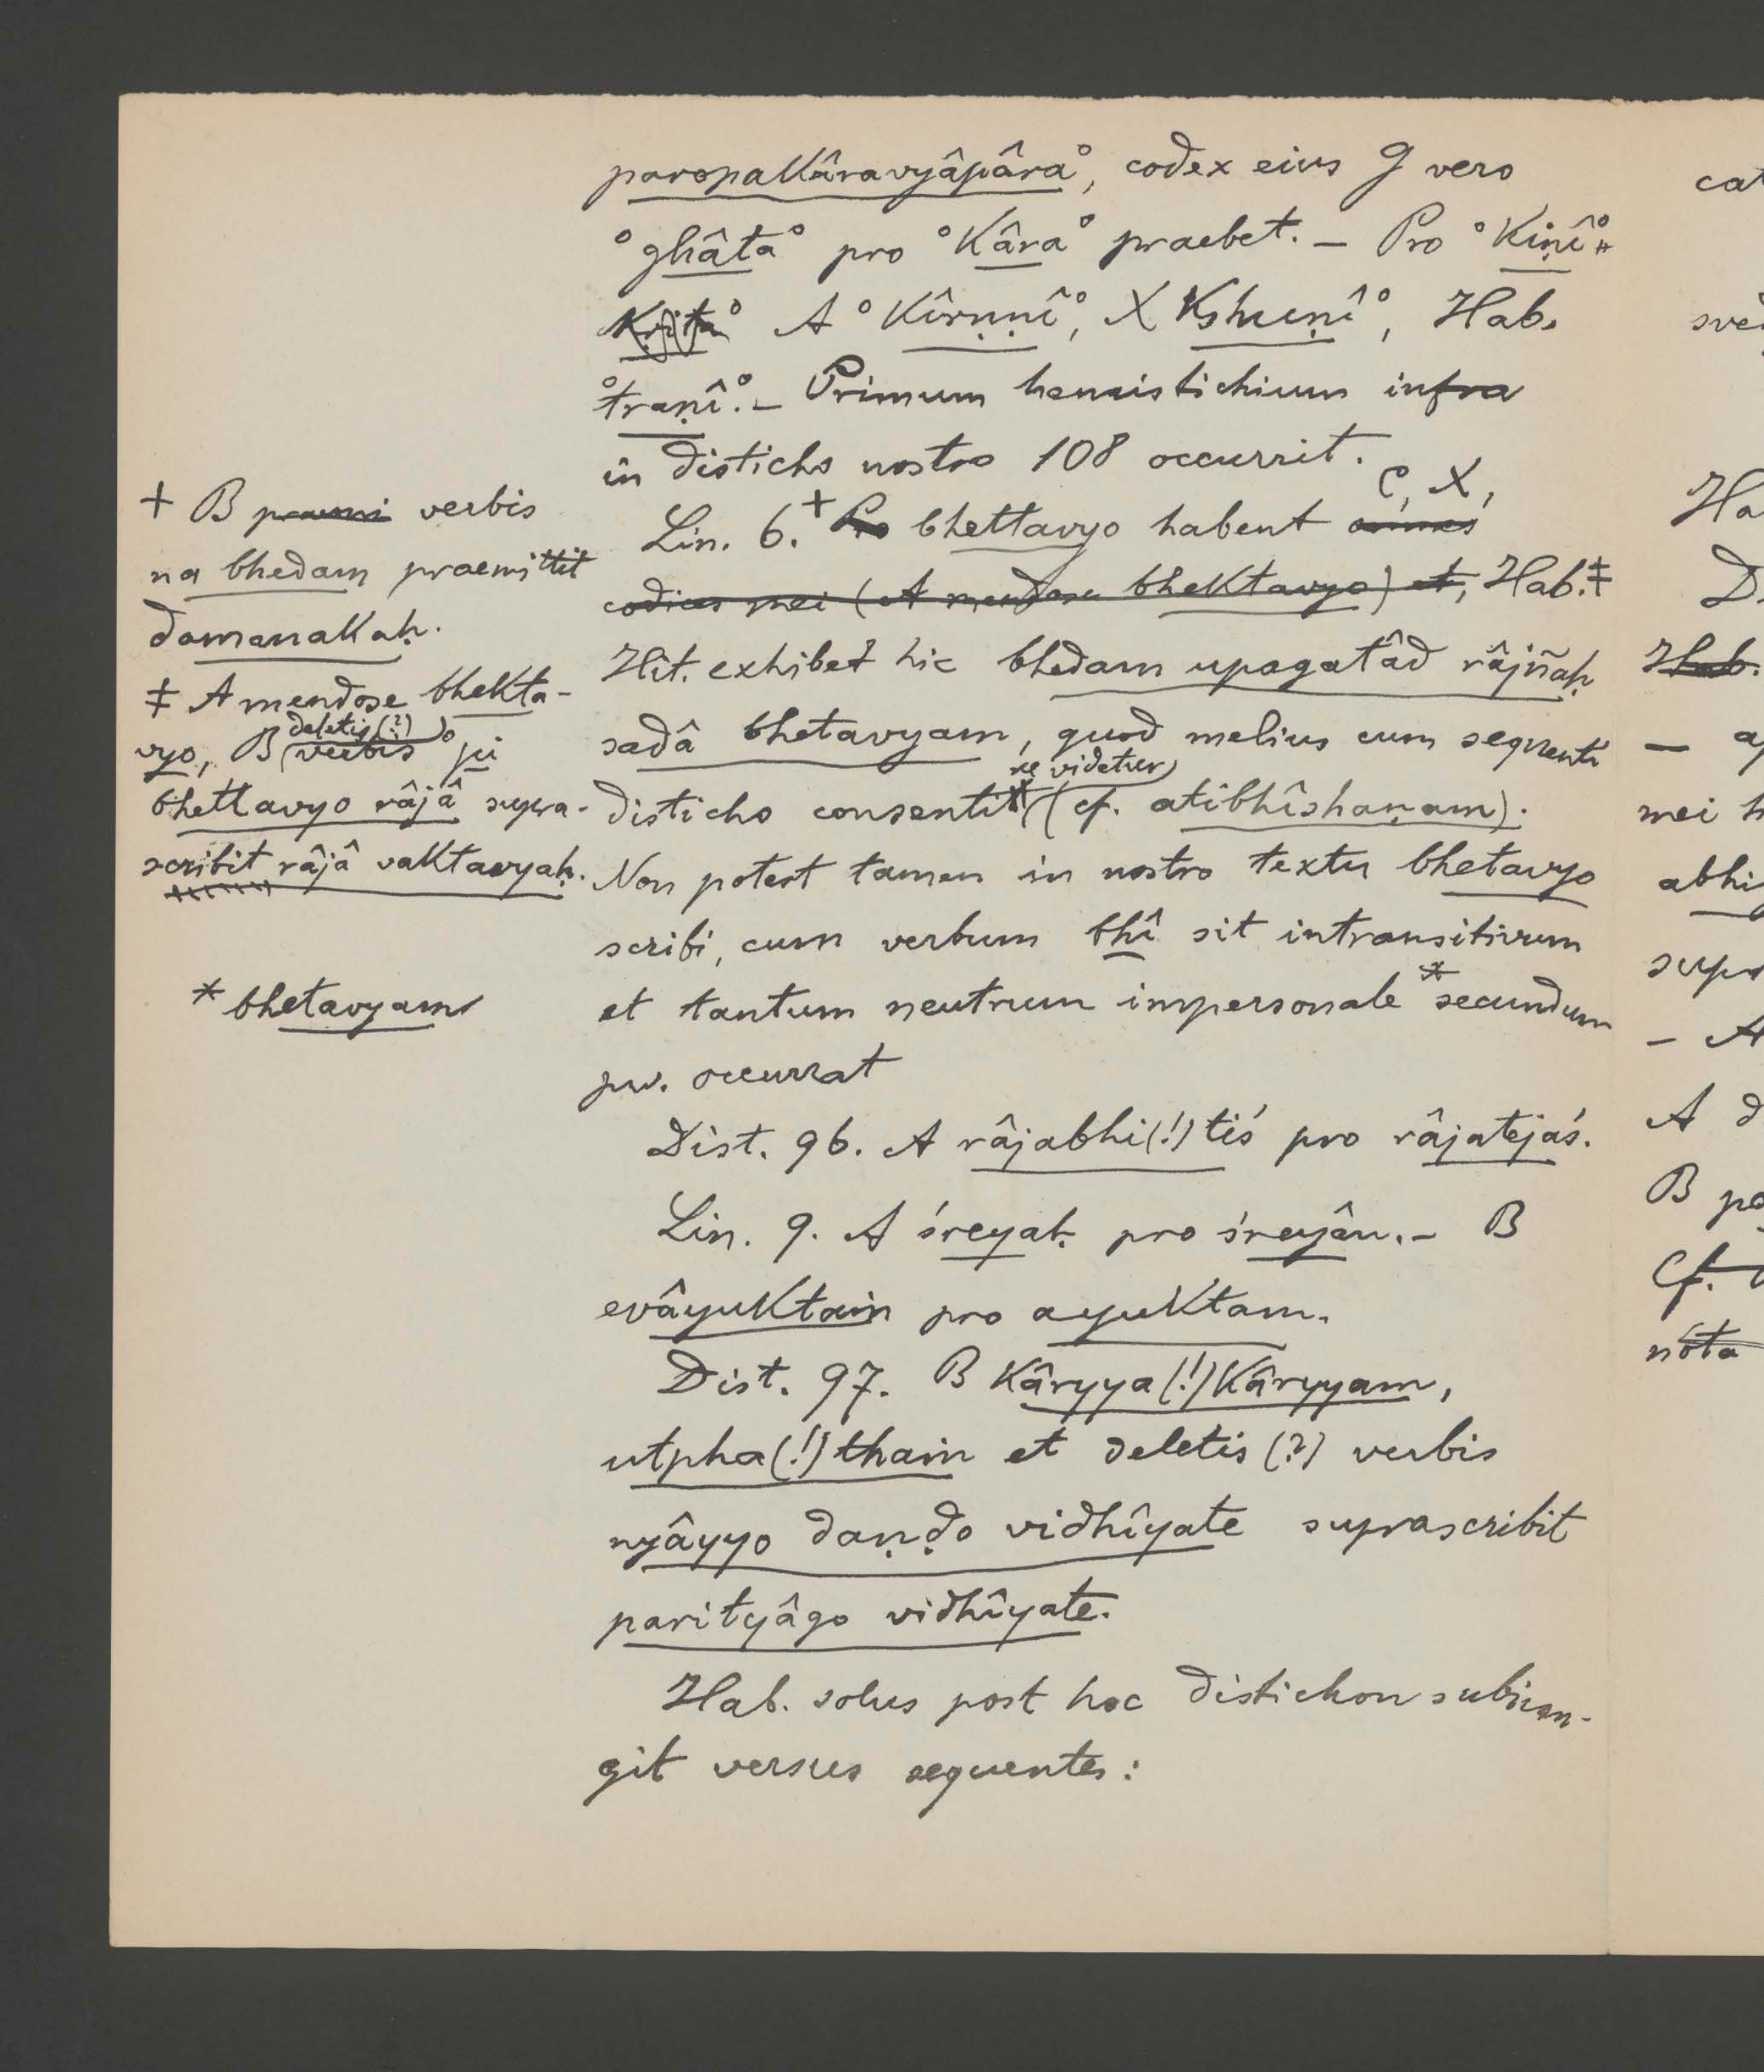 paropakâravyâpâra°, codex eius g vero
°ghâta° pro °kâra° praebet. – Pro °kiṇî°
krita° A °kîrṇṇî°, X kshuṇî°, Hab.
°traṇî°. – Primum hemistichium infra
in disticho nostro 108 occurrit.
C, X,
Lin. 6.+ Pro bhettavyo habent omnes
codices mei (A mendose bhektavyo) et, Hab.‡
Hit. exhibet hic bhedam upagatâd râjñaḥ
sadâ bhetavyam, quod melius cum sequenti
re videtur
disticho consentit (cf. atibhîshaṇam).
Non potest tamen in nostro textu bhetavyo
scribi, cum verbum bhî sit intransitivum
et tantum neutrum impersonale * secundum
pw. occurrat
Dist. 96. A râjabhi(!)tiś pro râjatejaś.
Lin. 9. A śreyaḥ pro śreyân. – B
evâyuktaṁ pro ayuktam.
Dist. 97. B kâryya(!)kâryyam,
utpha(!)thaṁ et deletis (?) verbis
nyâyyo daṇḍo vidhîyate suprascribit
parityâgo vidhîyate.
Hab. solus post hoc distichon subiun-
git versus sequentes:
+ B verbis
na bhedam praemittit
damanakaḥ.
‡ A mendose bhekta-
deletis (?)
vyo, B verbis °pi
bhettavyo râjâ supra-
scribit râjâ vaktavyaḥ.
* bhetavyam
cat
Ha
D
Hab.
mei h
abhi
– A
A d
B pa
Cf.
nota